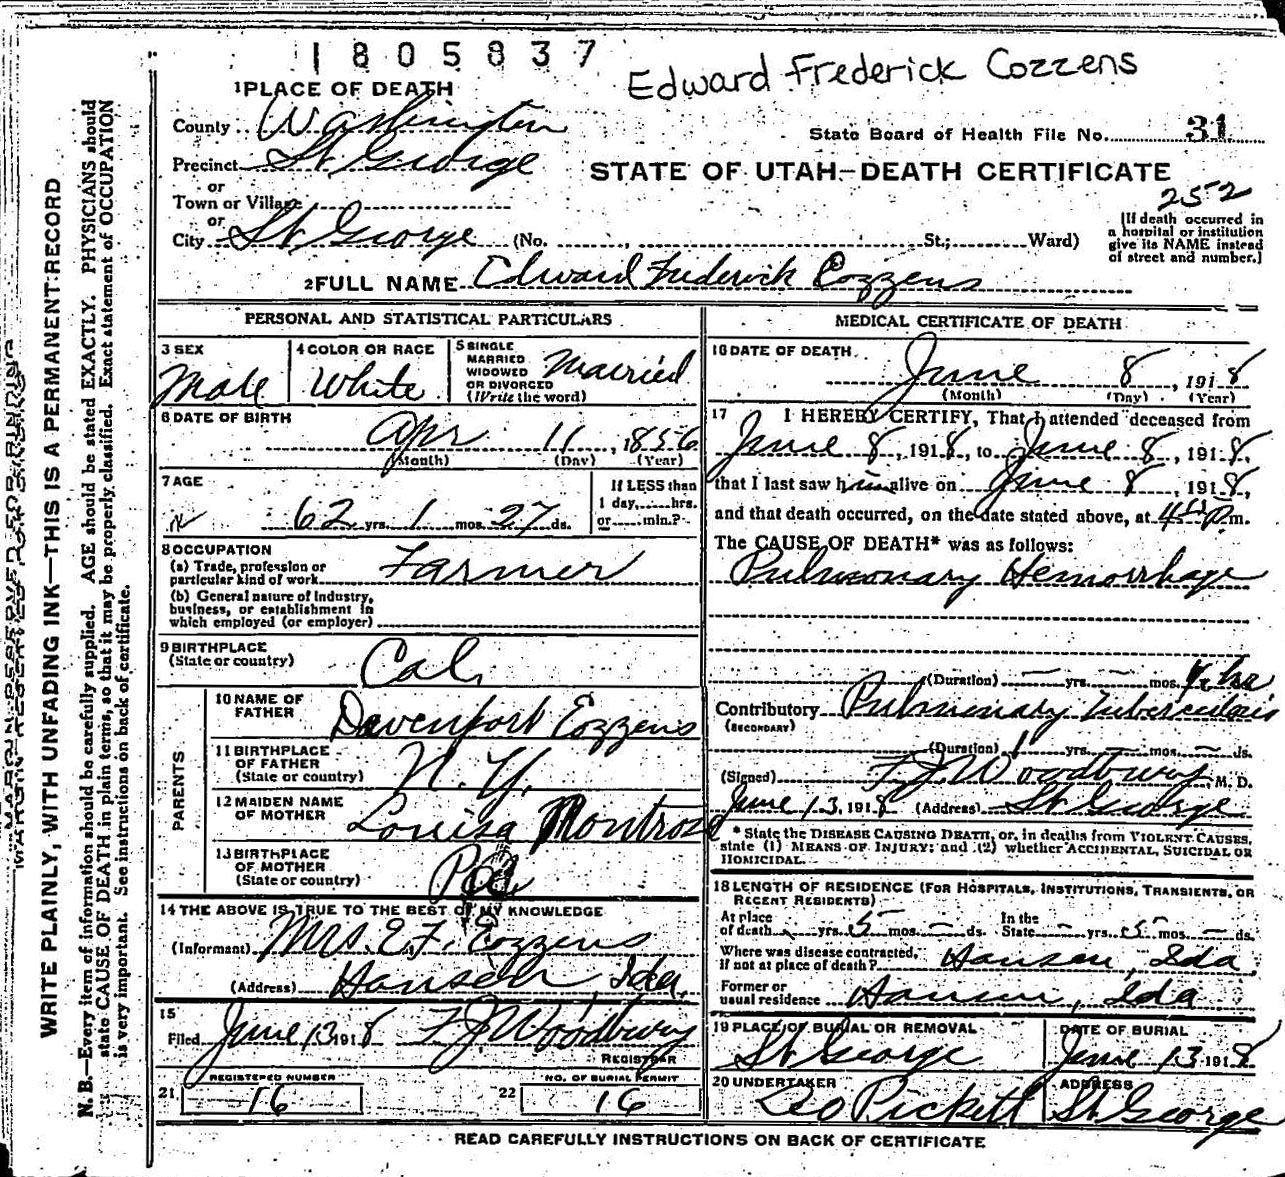 1805837
Edward Frederick Cozzens
1 PLACE OF DEATH
County Washington
State Board of Health File No. 31
Precinct St. George
STATE OF UTAH—DEATH CERTIFICATE
or
Town or Village
252
or
City St. George (No. , St.; Ward)
[If death occurred in
a hospital or institution
give its NAME instead
of street and number.]
2 FULL NAME Edward Frederick Cozzens
PERSONAL AND STATISTICAL PARTICULARS
3 SEX
Male
4 COLOR OR RACE
White
5 SINGLE
MARRIED
WIDOWED
OR DIVORCED
(Write the word)
Married
6 DATE OF BIRTH
Apr 11, 1856
(Month) (Day) (Year)
7 AGE
62 yrs. 1 mos. 27 ds.
If LESS than
1 day, hrs.
or min.?
8 OCCUPATION
(a) Trade, profession or
particular kind of work Farmer
(b) General nature of industry,
business, or establishment in
which employed (or employer)
9 BIRTHPLACE
(State or country)
Cal.
PARENTS
10 NAME OF
FATHER
Davenport Cozzens
11 BIRTHPLACE
OF FATHER
(State or country)
N. Y.
12 MAIDEN NAME
OF MOTHER
Louisa Montrose
13 BIRTHPLACE
OF MOTHER
(State or country)
Pa
14 THE ABOVE IS TRUE TO THE BEST OF MY KNOWLEDGE
(Informant) Mrs. E. F. Cozzens
(Address) Hansen, Ida.
15
Filed June 13 1918 F J Woodbury
REGISTRAR
REGISTERED NUMBER
21 16
NO. OF BURIAL PERMIT
22 16
MEDICAL CERTIFICATE OF DEATH
16 DATE OF DEATH
June 8, 1918
(Month) (Day) (Year)
17 I HEREBY CERTIFY, That I attended deceased from
June 8, 1918, to June 8, 1918,
that I last saw him alive on June 8, 1918,
and that death occurred, on the date stated above, at m.
The CAUSE OF DEATH* was as follows:
Pulmonary Hemorrhage
(Duration) yrs. mos.
Contributory Pulmonary Tuberculosis
(SECONDARY)
(Duration) 1 yrs. — mos. — ds.
(Signed) F J Woodbury, M. D.
June 13, 1918 (Address) St George
* State the DISEASE CAUSING DEATH, or, in deaths from VIOLENT CAUSES,
state (1) MEANS OF INJURY; and (2) whether ACCIDENTAL, SUICIDAL OR
HOMICIDAL.
18 LENGTH OF RESIDENCE (FOR HOSPITALS, INSTITUTIONS, TRANSIENTS, OR
RECENT RESIDENTS)
At place
of death yrs. 5 mos. — ds.
In the
State — yrs. 5 mos. — ds.
Where was disease contracted,
if not at place of death? Hansen, Ida
Former or
usual residence Hansen, Ida
19 PLACE OF BURIAL OR REMOVAL
St George
DATE OF BURIAL
June 13 1918
20 UNDERTAKER
Geo Pickett
ADDRESS
St George
READ CAREFULLY INSTRUCTIONS ON BACK OF CERTIFICATE
MARGIN RESERVED FOR BINDING
WRITE PLAINLY, WITH UNFADING INK—THIS IS A PERMANENT RECORD
N. B.—Every item of information should be carefully supplied. AGE should be stated EXACTLY. PHYSICIANS should
state CAUSE OF DEATH in plain terms, so that it may be properly classified. Exact statement of OCCUPATION
is very important. See instructions on back of certificate.